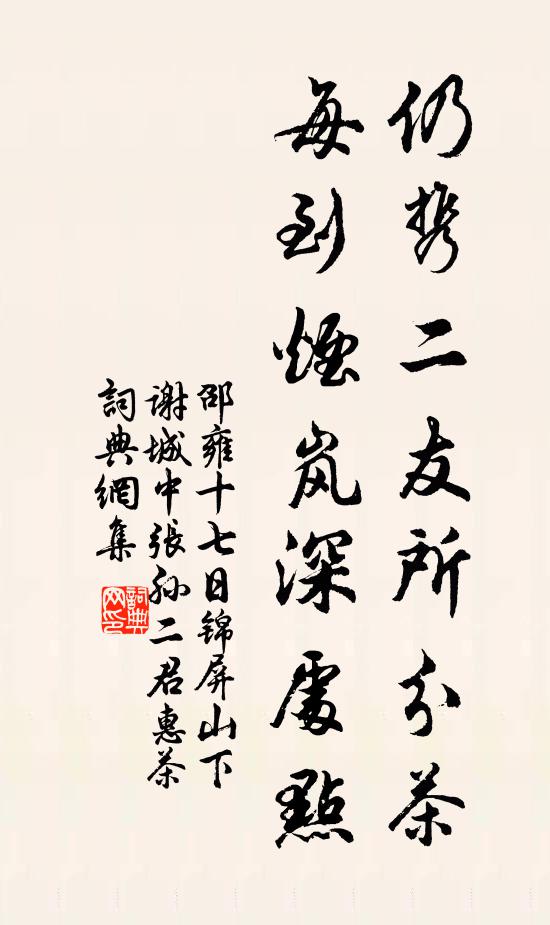 仍携二友所分茶
每到煙岚深處點
邵雍十七日锦屏山下
谢城中張孙二君惠茶
詞典網集
詞典网印